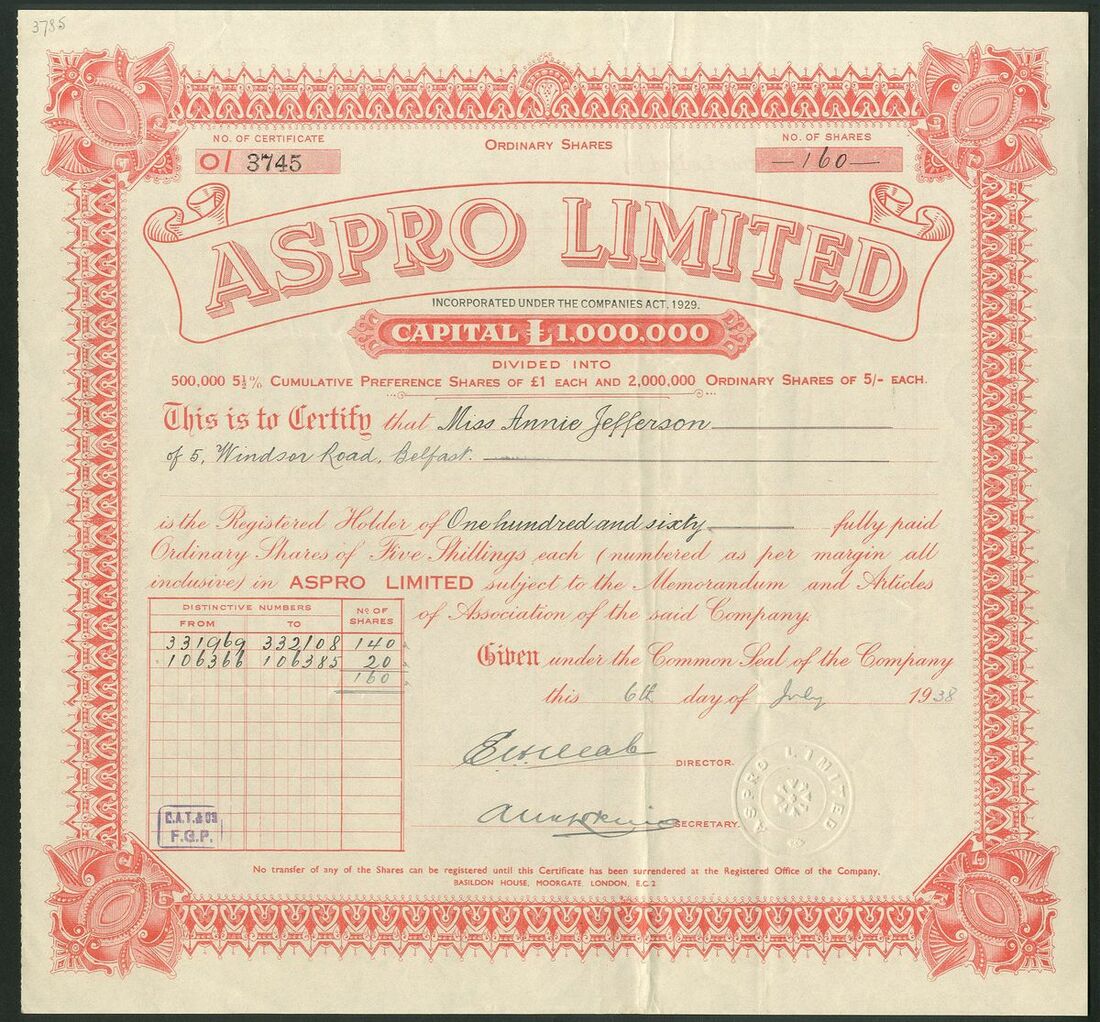 3785
NO. OF CERTIFICATE
ORDINARY SHARES
NO. OF SHARES
O/ 3745
—160—
ASPRO LIMITED
INCORPORATED UNDER THE COMPANIES ACT, 1929.
CAPITAL £1,000,000
DIVIDED INTO
500,000 5½% CUMULATIVE PREFERENCE SHARES OF £1 EACH AND 2,000,000 ORDINARY SHARES OF 5/- EACH.
This is to Certify that Miss Annie Jefferson
of 5, Windsor Road, Belfast.
is the Registered Holder of One hundred and sixty fully paid
Ordinary Shares of Five Shillings each (numbered as per margin all
inclusive) in ASPRO LIMITED subject to the Memorandum and Articles
of Association of the said Company.
DISTINCTIVE NUMBERS
Nº OF SHARES
FROM TO
331969 332108 140
106366 106385 20
160
Given under the Common Seal of the Company
this 6th day of July 1938
DIRECTOR.
SECRETARY.
ASPRO LIMITED
F.G.P.
No transfer of any of the Shares can be registered until this Certificate has been surrendered at the Registered Office of the Company,
BASILDON HOUSE, MOORGATE, LONDON, E.C.2